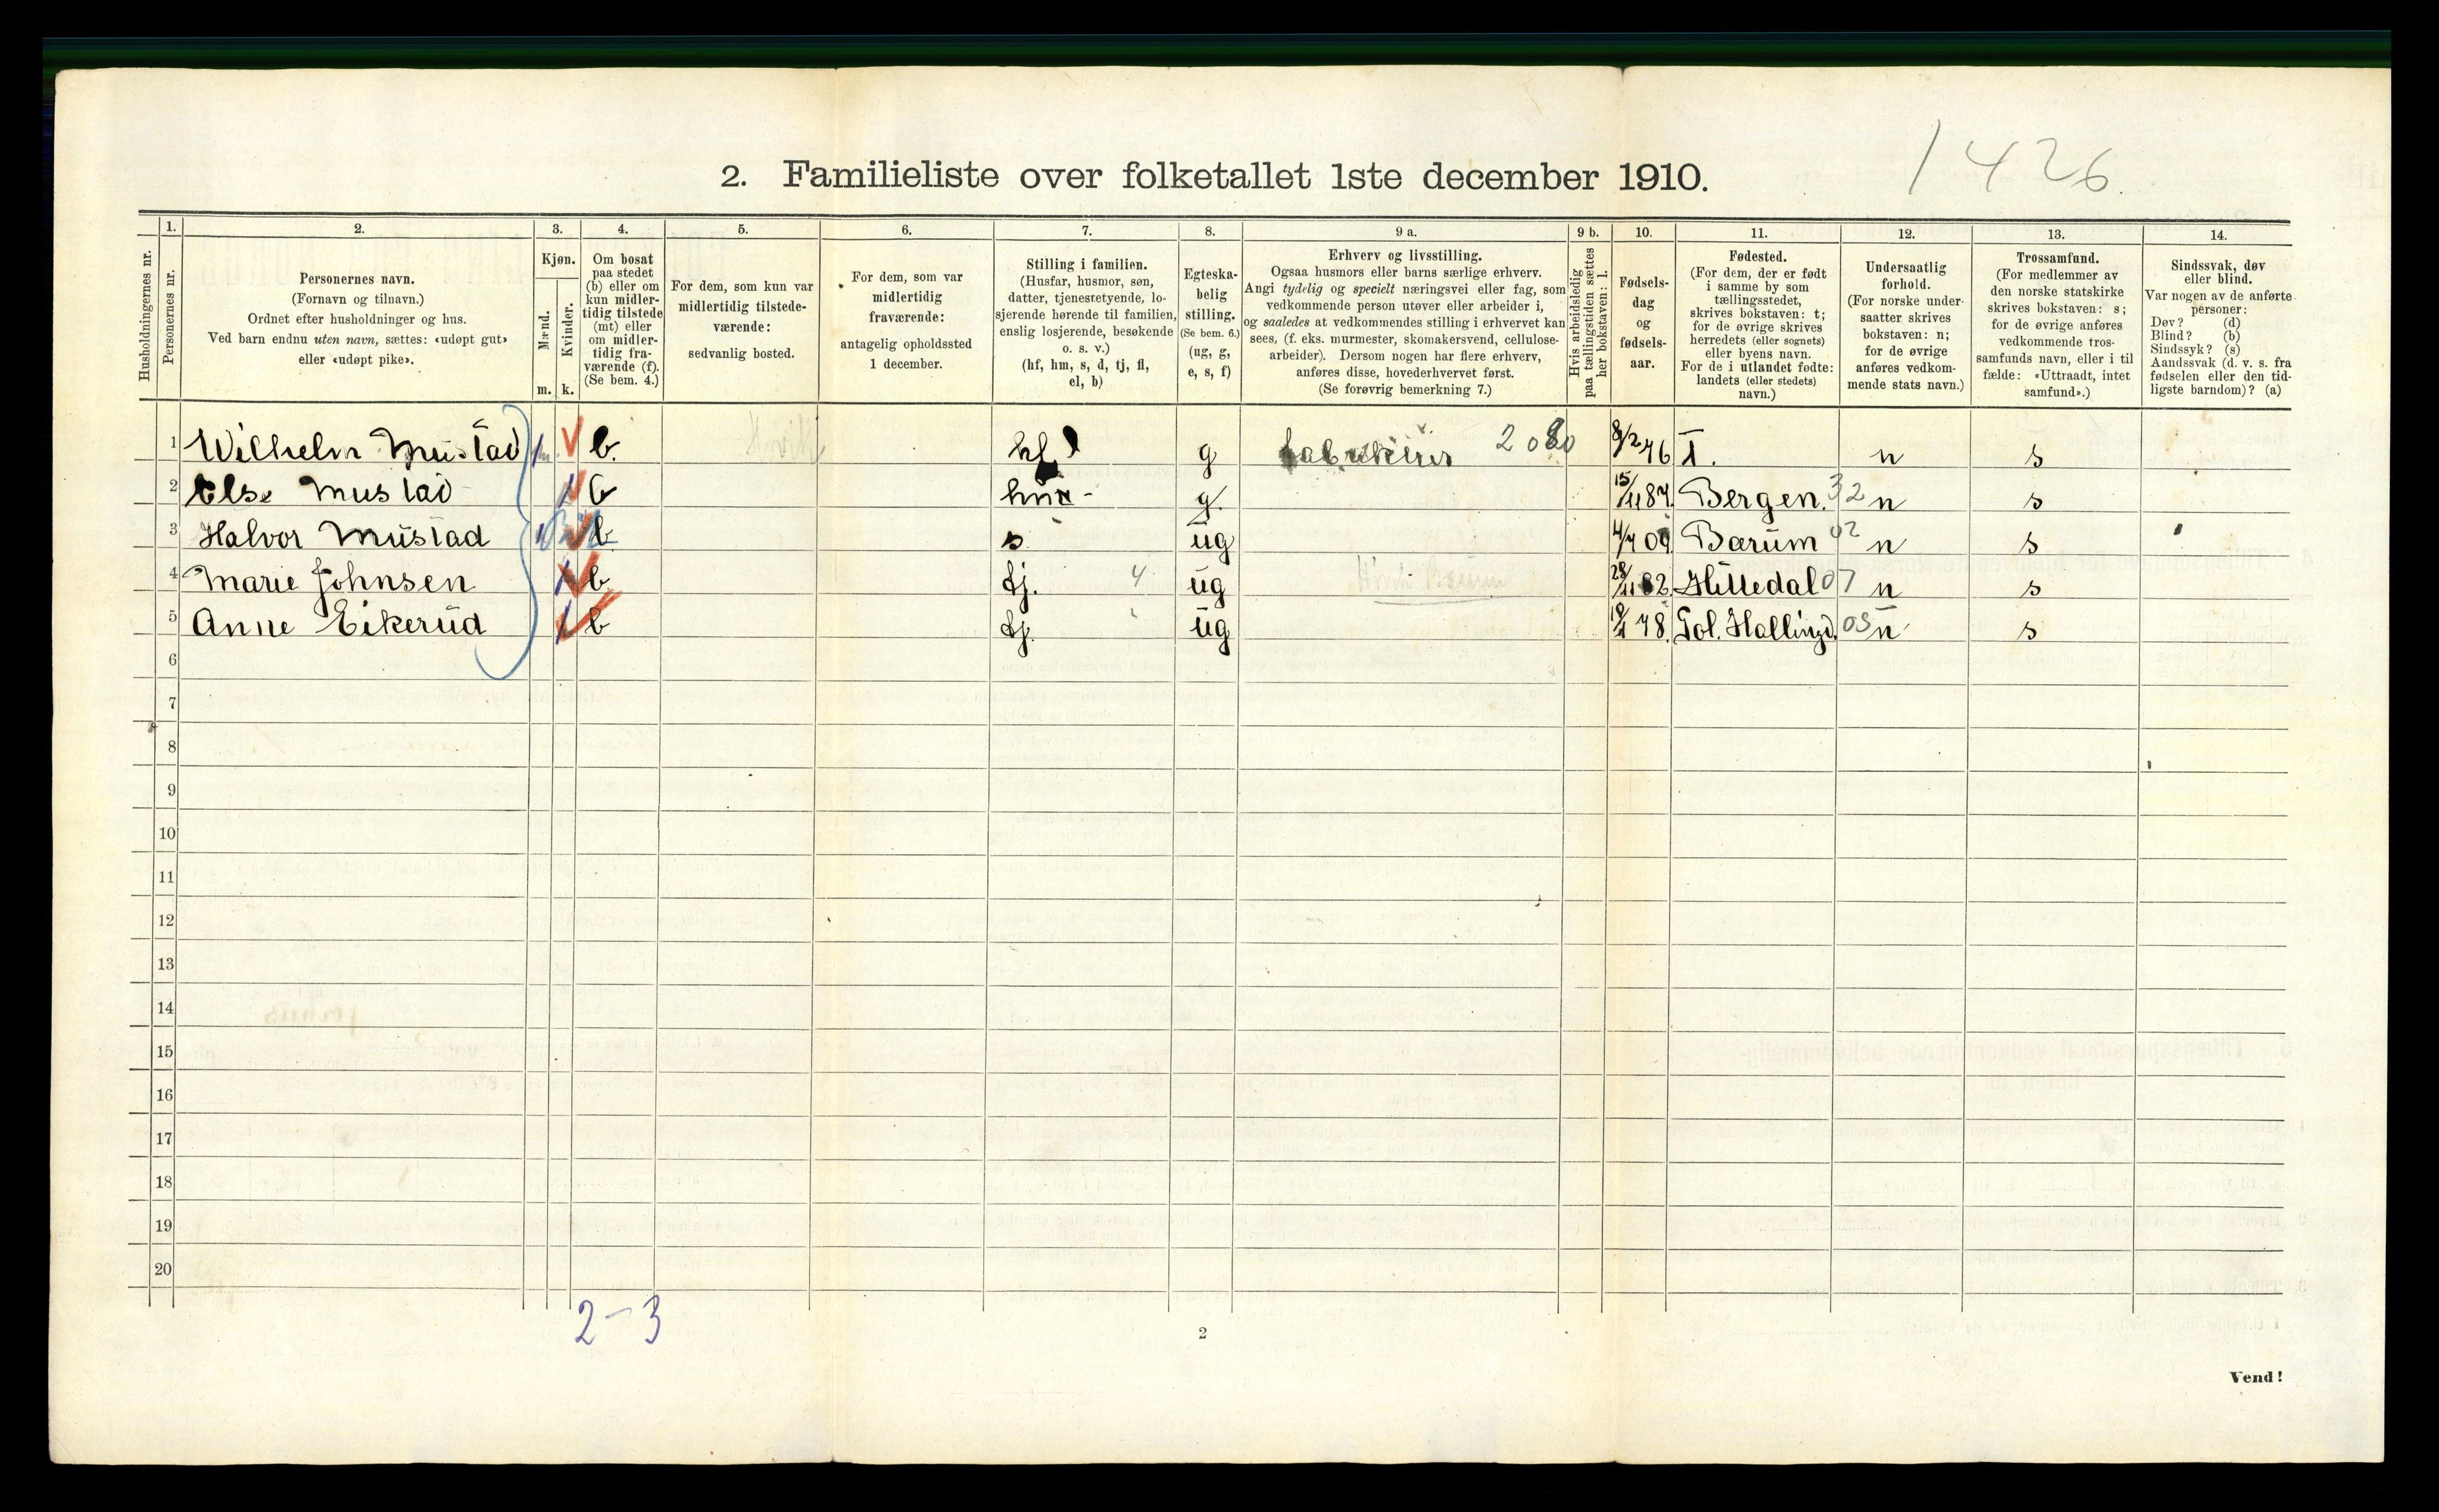 1426.
2. Familieliste over folketallet 1ste december 1910.
Husholdningernes nr.
1.
Personernes nr.
2.
Personernes navn.
(Fornavn og tilnavn.)
Ordnet efter husholdninger og hus.
Ved barn endnu uten navn, sættes: «udøpt gut»
eller «udøpt pike».
3.
Kjøn.
Mænd.
Kvinder.
m. k.
4.
Om bosat
paa stedet
(b) eller om
kun midler-
tidig tilstede
(mt) eller
om midler-
tidig fra-
værende (f).
(Se bem. 4.)
5.
For dem, som kun var
midlertidig tilstede-
værende:
sedvanlig bosted.
6.
For dem, som var
midlertidig
fraværende:
antagelig opholdssted
1 december.
7.
Stilling i familien.
(Husfar, husmor, søn,
datter, tjenestetyende, lo-
sjerende hørende til familien,
enslig losjerende, besøkende
o. s. v.)
(hf, hm, s, d, tj, fl,
el, b)
8.
Egteska-
belig
stilling.
(Se bem. 6.)
(ug, g,
e, s, f)
9 a.
Erhverv og livsstilling.
Ogsaa husmors eller barns særlige erhverv.
Angi tydelig og specielt næringsvei eller fag, som
vedkommende person utøver eller arbeider i,
og saaledes at vedkommendes stilling i erhvervet kan
sees, (f. eks. murmester, skomakersvend, cellulose-
arbeider). Dersom nogen har flere erhverv,
anføres disse, hovederhvervet først.
(Se forøvrig bemerkning 7.)
9 b.
Hvis arbeidsledig
paa tællingstiden sættes
her bokstaven: l.
10.
Fødsels-
dag
og
fødsels-
aar.
11.
Fødested.
(For dem, der er født
i samme by som
tællingsstedet,
skrives bokstaven: t;
for de øvrige skrives
herredets (eller sognets)
eller byens navn.
For de i utlandet fødte:
landets (eller stedets)
navn.)
12.
Undersaatlig
forhold.
(For norske under-
saatter skrives
bokstaven: n;
for de øvrige
anføres vedkom-
mende stats navn.)
13.
Trossamfund.
(For medlemmer av
den norske statskirke
skrives bokstaven: s;
for de øvrige anføres
vedkommende tros-
samfunds navn, eller i til
fælde: «Uttraadt, intet
samfund».)
14.
Sindssvak, døv
eller blind.
Var nogen av de anførte
personer:
Døv? (d)
Blind? (b)
Sindssyk? (s)
Aandssvak (d. v. s. fra
fødselen eller den tid-
ligste barndom)? (a)
1 Wilhelm Mustad b. hf g fabrikeier 8/2 76 T. n s
2 Else Mustad b hm - g. 15/11 87. Bergen. 32 n s
3 Halvor Mustad b s ug 4/7 09 Bærum 02 n s
4 Marie Johnsen b tj. 4 ug 28/11 82. Hittedal 07 n s
5 Anne Eikerud b tj. ug 78. Gol. Hallingd. 05 n s
6
7
8
9
10
11
12
13
14
15
16
17
18
19
20
2-3
2
Vend!